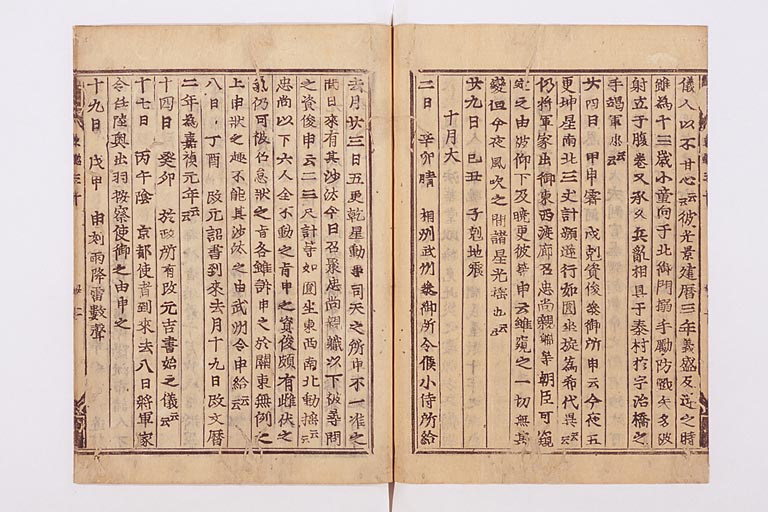 儀人以不甘心云云彼光景建暦三年義盛反逆之時
雖為十三歳小童向于北御門搦手勵防戰矢多破
射立于腹巻又承久兵亂相具于泰村於宇治橋之
手竭軍忠云云
廿四日 甲申霽 戌剋資俊參御所申云今夜五
更坤星南北三丈計頭逆行如圓坐旋為希代異云云
仍將軍家出御東西渡廊召忠尚親職等朝臣可窺
定之由被仰下及曉更彼輩申云雖窺之一切無其
變但今夜風吹之間諸星光揺也云云
廿九日 己丑 子剋地震
十月大
二日 辛卯晴 相州武州參御所令候小侍所給
去月廿三日五更乾星動事司天之所申不一准之
間日來有其沙汰今日召聚忠尚親職以下被尋問
之資俊申云二三尺計等如圓坐東西南北動揺云云
忠尚以下六人全不動之旨申之資俊頗有雌伏之
氣仍可被仰怠状之旨各雖訴申之於關東無例之
上申状之趣不能其沙汰之由武州令申給云云
八日 丁酉 改元詔書到來去月十九日改文暦
二年為嘉禎元年云云
十四日 癸卯 於政所有改元吉書始之儀云云
十七日 丙午陰 京都使者到來去八日將軍家
令任陸奥出羽按察使御之由申之
十九日 戊申 申刻雨降雷數聲